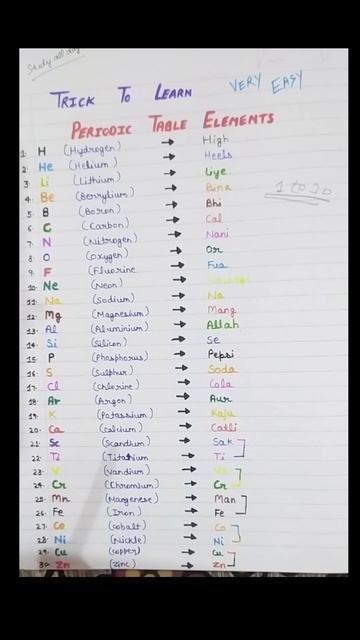 Study all day
TRICK TO LEARN VERY EASY
PERIODIC TABLE ELEMENTS
1 to 30
1. H (Hydrogen) → High
2. He (Helium) → Heels
3. Li (Lithium) → Liye
4. Be (Berrylium) → Bina
5. B (Boron) → Bhi
6. C (Carbon) → Cal
7. N (Nitrogen) → Nani
8. O (Oxygen) → Or
9. F (Fluorine → Fua
10. Ne (Neon) →
11. Na (Sodium) → Na
12. Mg (Magnesium) → Mang
13. Al (Aluminium) → Allah
14. Si (Silicon) → Se
15. P (Phosphorus) → Pepsi
16. S (Sulphur) → Soda
17. Cl (Chlorine) → Cola
18. Ar (Argon) → Aur
19. K (Potassium) → Kaju
20. Ca (Calcium) → Catli
21. Sc (Scandium) → Sak
22. Ti (Titanium → Ti
23. V (Vandium) → Va
24. Cr (Chromium) → Cr
25. Mn (Mangenese) → Man
26. Fe (Iron) → Fe
27. Co (cobalt) → Co
28. Ni (Nickle) → Ni
29. Cu (copper) → Cu
30. Zn (zinc) → Zn